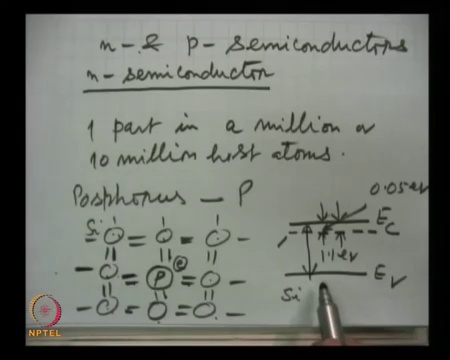 n- & p- semiconductors
n- semiconductor
1 part in a million or
10 million host atoms.
Posphorus - P
0.05 eV
Si
Ec
P
e
1.1 eV
Ev
Si
NPTEL